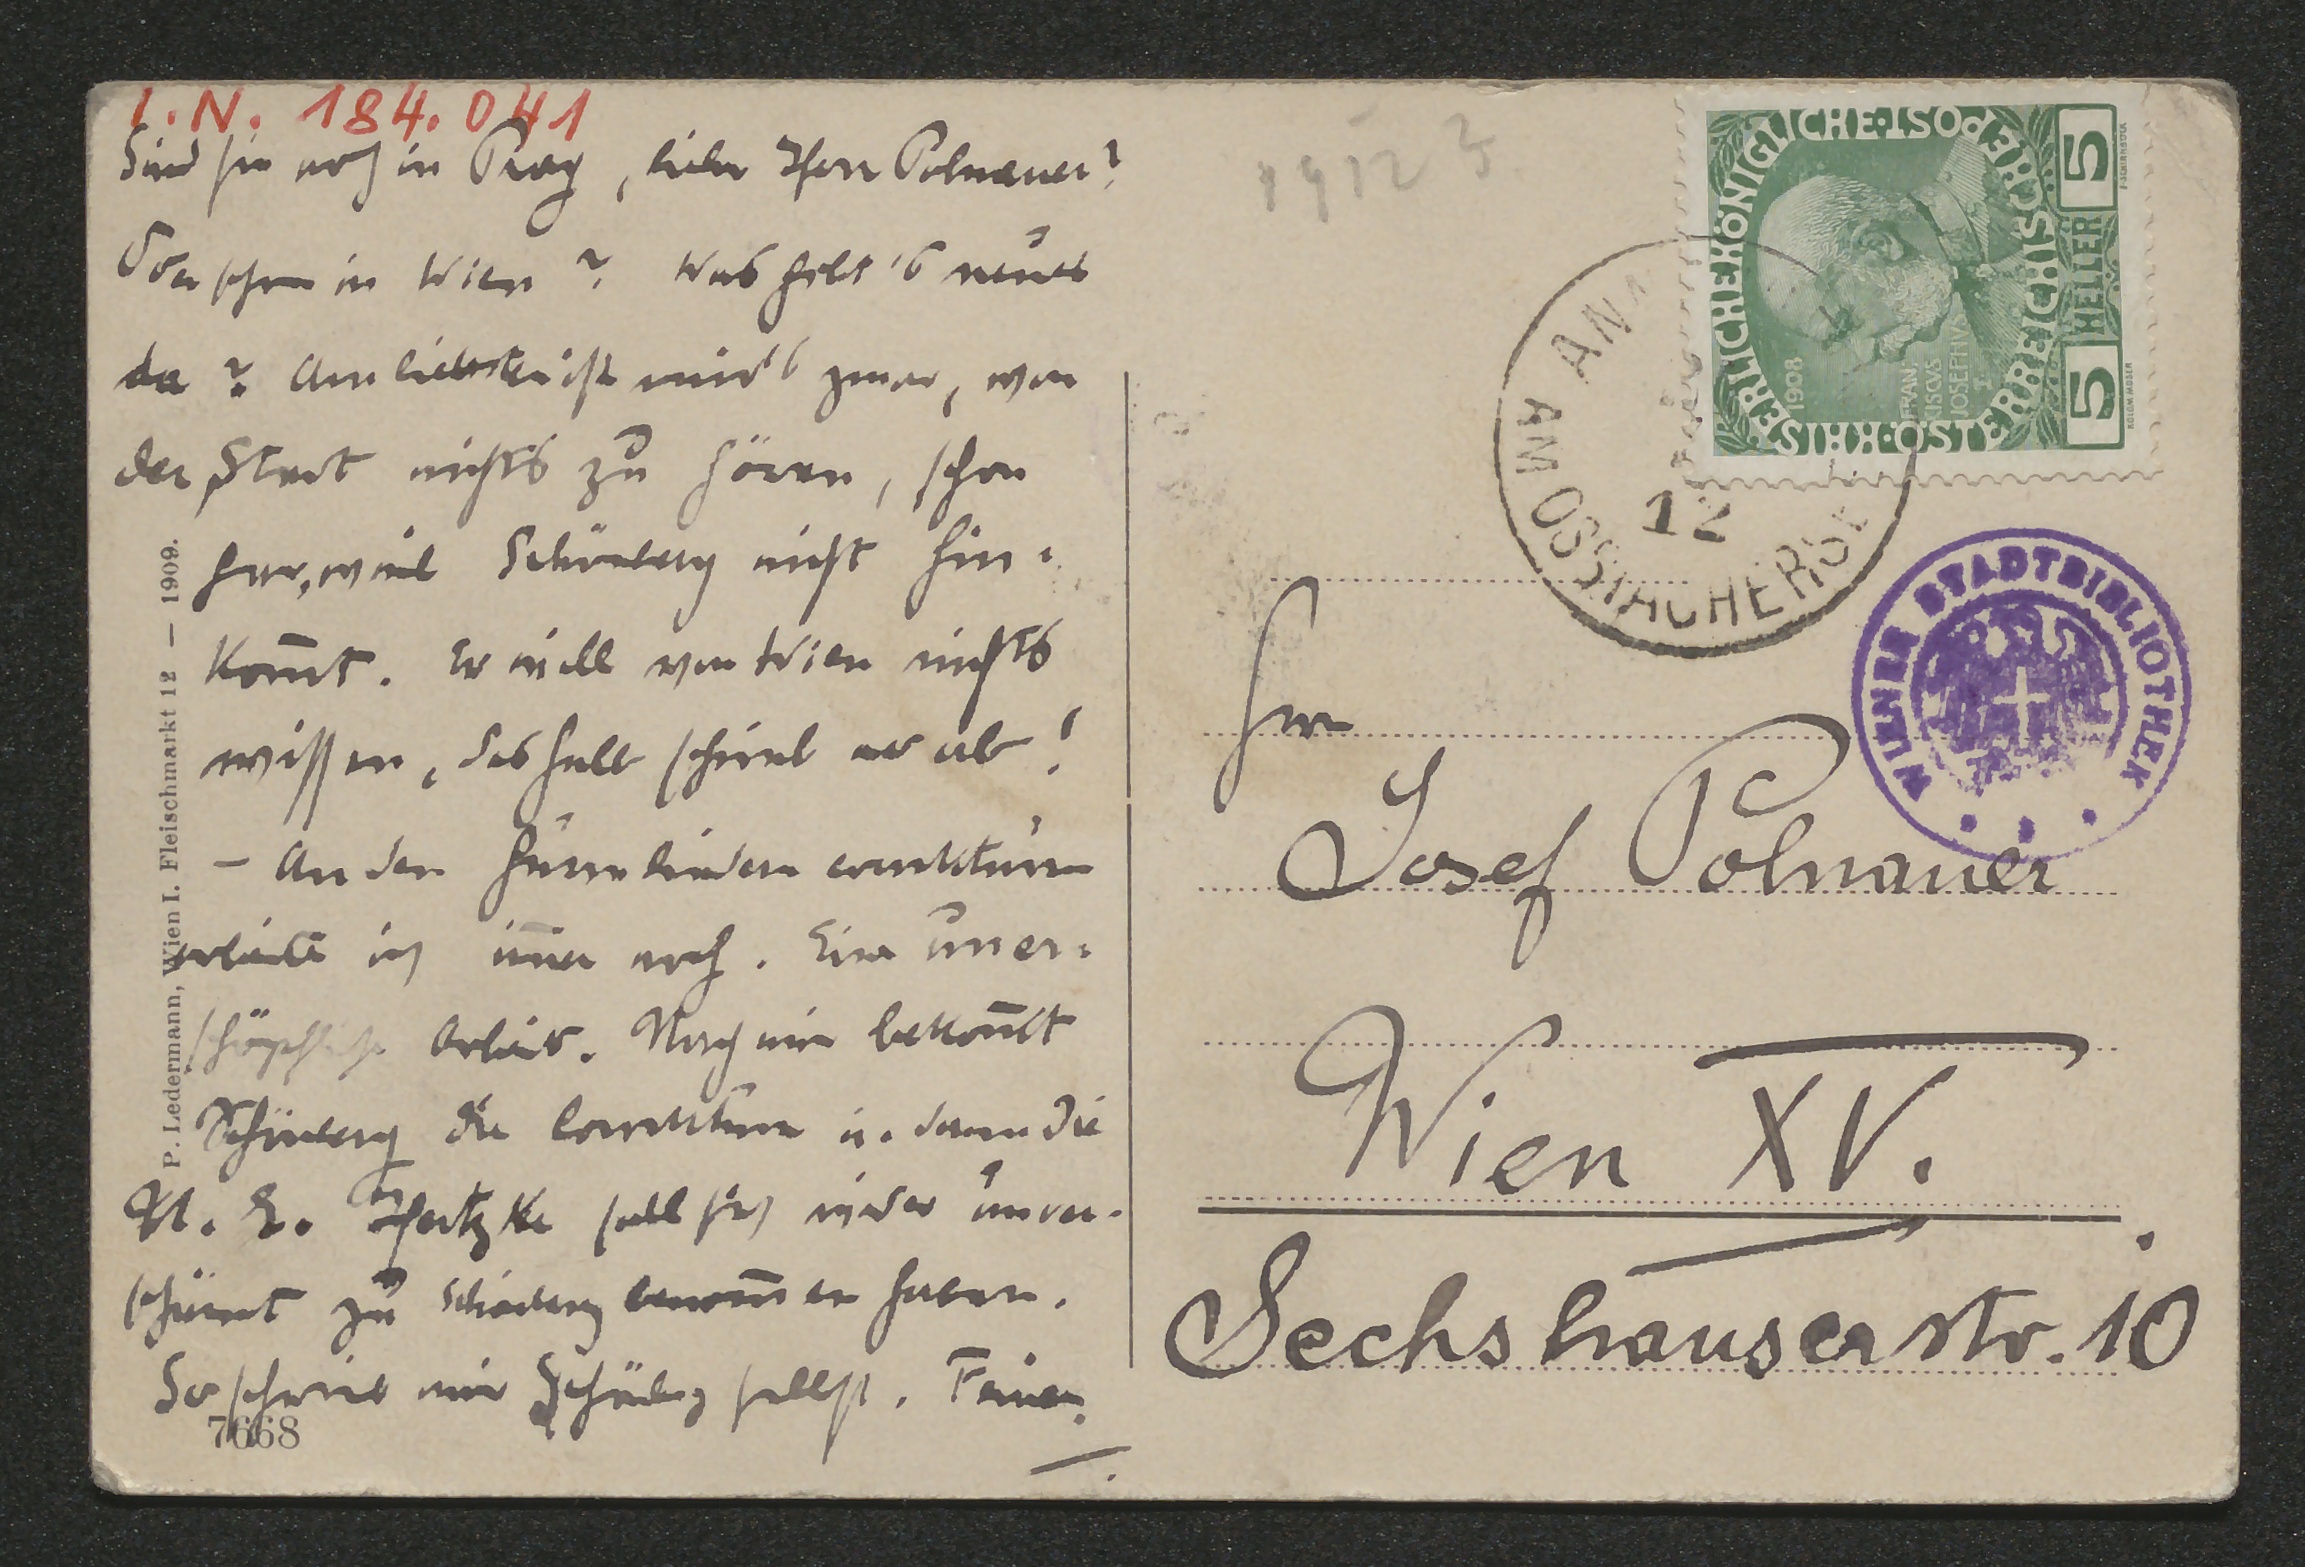 I.N. 184.041
Sind sie noch in Prag, lieber Herr Polnauer?
Oder schon in Wien? Was giebt's neues
da? Am liebsten ist mir's zwar, von
der Stadt nichts zu hören, schon
gar, weil Schönberg nicht hin-
kom̅t. Er will von Wien nichts
wissen, deshalb schrieb er ab!
– An den Gurreliedern
arbeite ich im̅er noch. Eine uner-
schöpfliche Arbeit. Nach mir bekom̅t
Schönberg die u. dann die
U. E. Hertzka soll sich wieder unver-
schämt zu Schönberg benom̅en haben.
So schrieb mir Schönberg selbst.
7668
P. Ledermann, Wien I. Fleischmarkt 12 — 1909.
1912
KAISERLICHE KÖNIGLICHE ÖSTERREICHISCHE POST
5 HELLER 5
1908
FRANCISCVS JOSEPHVS I.
AM OSSIACHERSEE
12
WIENER STADTBIBLIOTHEK
Herrn
Josef Polnauer
Wien XV.
Sechshauserstr. 10